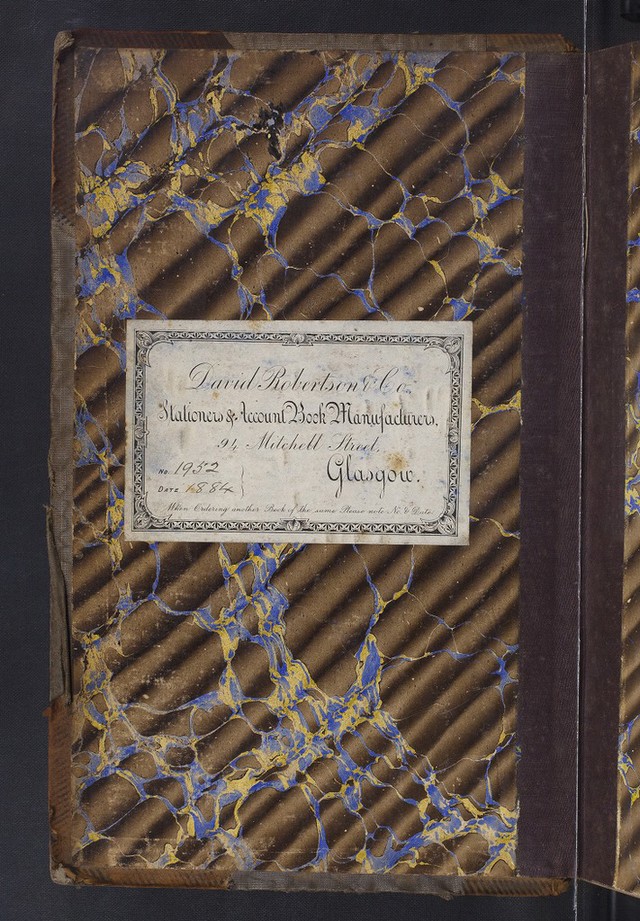 David Robertson & Co.
Stationers & Account Book Manufacturers,
94, Mitchell Street,
Glasgow.
No. 1952
Date 1884
When Ordering another Book of the same Please note No. & Date.